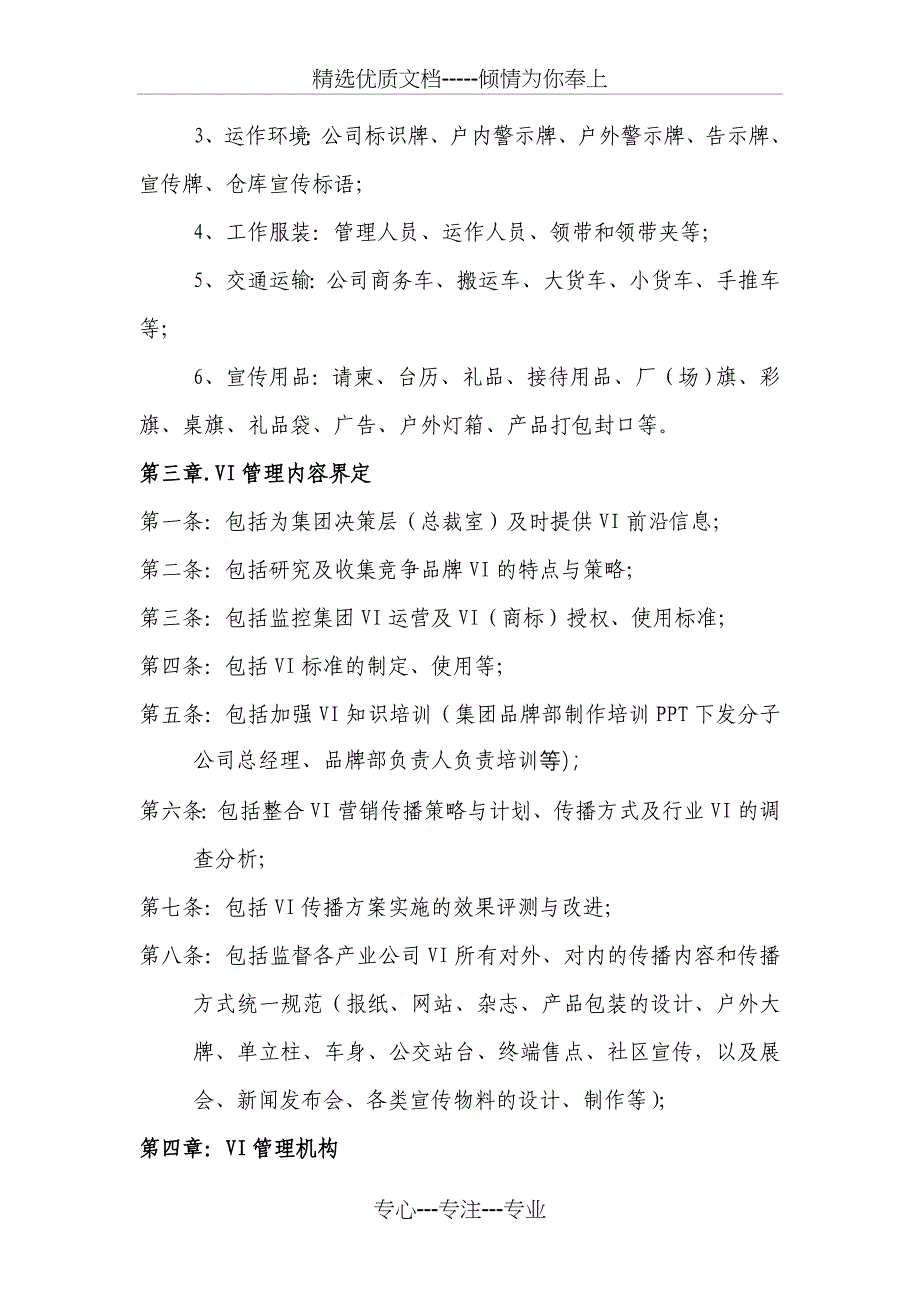 精选优质文档-----倾情为你奉上
3、运作环境：公司标识牌、户内警示牌、户外警示牌、告示牌、
宣传牌、仓库宣传标语；
4、工作服装：管理人员、运作人员、领带和领带夹等；
5、交通运输：公司商务车、搬运车、大货车、小货车、手推车
等；
6、宣传用品：请柬、台历、礼品、接待用品、厂（场）旗、彩
旗、桌旗、礼品袋、广告、户外灯箱、产品打包封口等。
第三章.VI管理内容界定
第一条：包括为集团决策层（总裁室）及时提供VI前沿信息；
第二条：包括研究及收集竞争品牌VI的特点与策略；
第三条：包括监控集团VI运营及VI（商标）授权、使用标准；
第四条：包括VI标准的制定、使用等；
第五条：包括加强VI知识培训（集团品牌部制作培训PPT下发分子
公司总经理、品牌部负责人负责培训等）；
第六条：包括整合VI营销传播策略与计划、传播方式及行业VI的调
查分析；
第七条：包括VI传播方案实施的效果评测与改进；
第八条：包括监督各产业公司VI所有对外、对内的传播内容和传播
方式统一规范（报纸、网站、杂志、产品包装的设计、户外大
牌、单立柱、车身、公交站台、终端售点、社区宣传，以及展
会、新闻发布会、各类宣传物料的设计、制作等）；
第四章：VI管理机构
专心---专注---专业